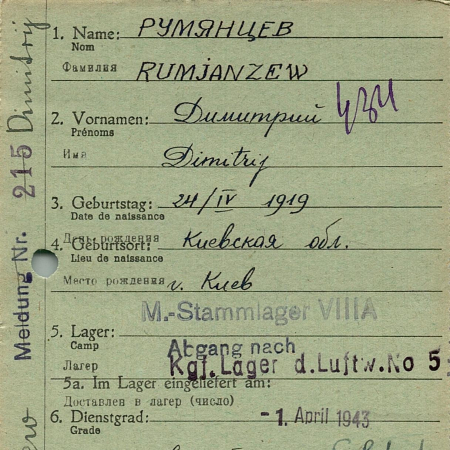 1. Name: РУМЯНЦЕВ
Nom
Фамилия RUMJANZEW
2. Vornamen: Димитрий
Prénoms
Имя Dimitrij
3. Geburtstag: 24/IV 1919
Date de naissance
День рождения
4. Geburtsort: Киевская обл.
Lieu de naissance
Место рождения г. Киев
M.-Stammlager VIIIA
5. Lager: Abgang nach
Camp
Лагерь Kgf. Lager d. Luftw. No 5
5a. Im Lager eingeliefert am:
Доставлен в лагерь (число)
6. Dienstgrad: -1. April 1943
Grade
Meldung Nr. 215 Dimitrij